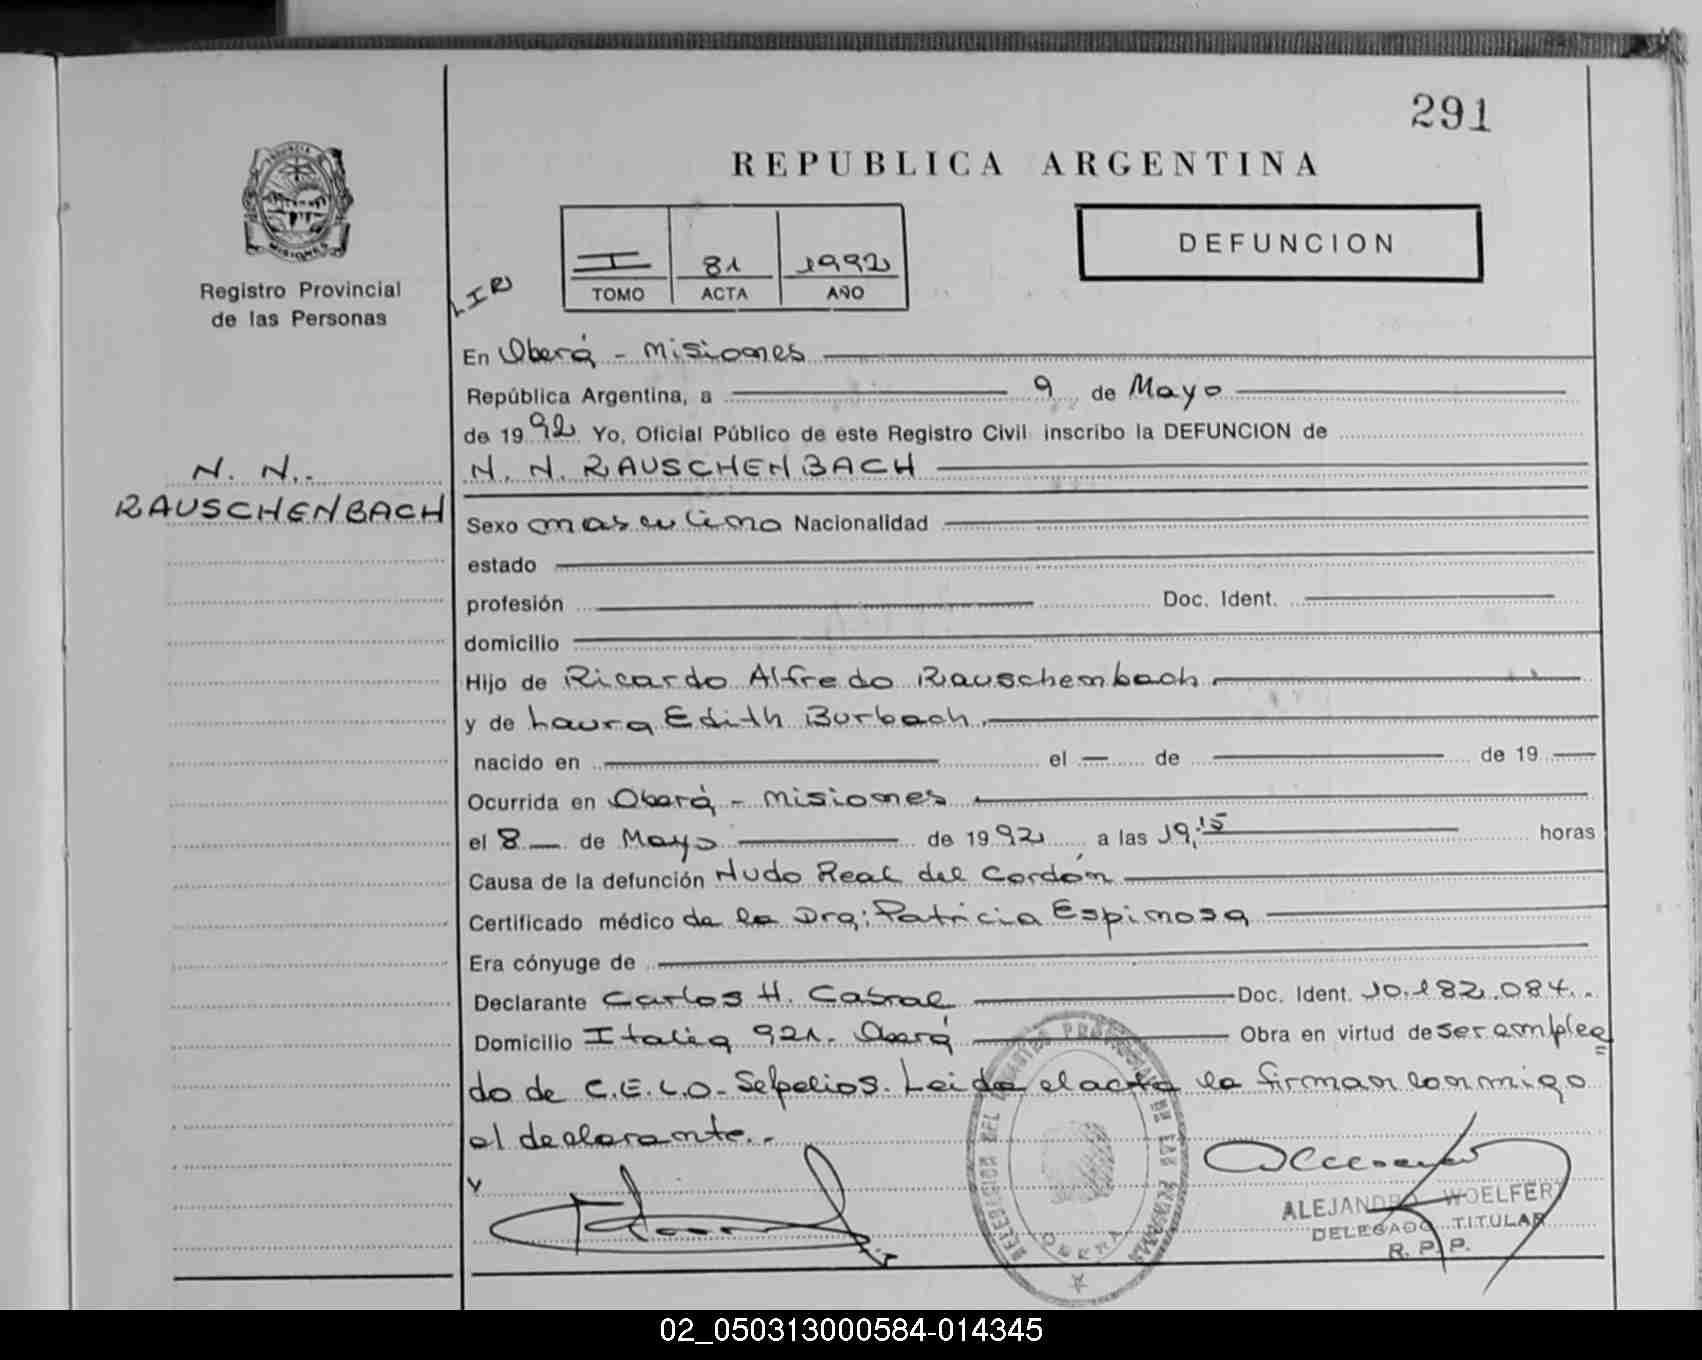 291
REPUBLICA ARGENTINA
DEFUNCION
I 81 1992
TOMO ACTA AÑO
PROVINCIA
MISIONES
Registro Provincial
de las Personas
En Oberá - Misiones
República Argentina, a 9 de Mayo
de 1992 Yo, Oficial Público de este Registro Civil inscribo la DEFUNCION de
N. N. RAUSCHENBACH
N. N.
RAUSCHENBACH
Sexo masculino Nacionalidad
estado
profesión Doc. Ident.
domicilio
Hijo de Ricardo Alfredo Rauschenbach
y de Laura Edith Burbach
nacido en el — de de 19
Ocurrida en Oberá - Misiones
el 8 de Mayo de 1992 a las 19,15 horas
Causa de la defunción Nudo Real del Cordón
Certificado médico de la Dra: Patricia Espinosa
Era cónyuge de
Declarante Carlos H. Cabral Doc. Ident. 10.182.084..
Domicilio Italia 921. Oberá Obra en virtud de ser emplea
do de C.E.L.O- Sepelios. Leida el acta la firman conmigo
el declarante..
y
OBERA
ALEJANDRO WOELFERT
DELEGADO TITULAR
R. P. P.
02_050313000584-014345